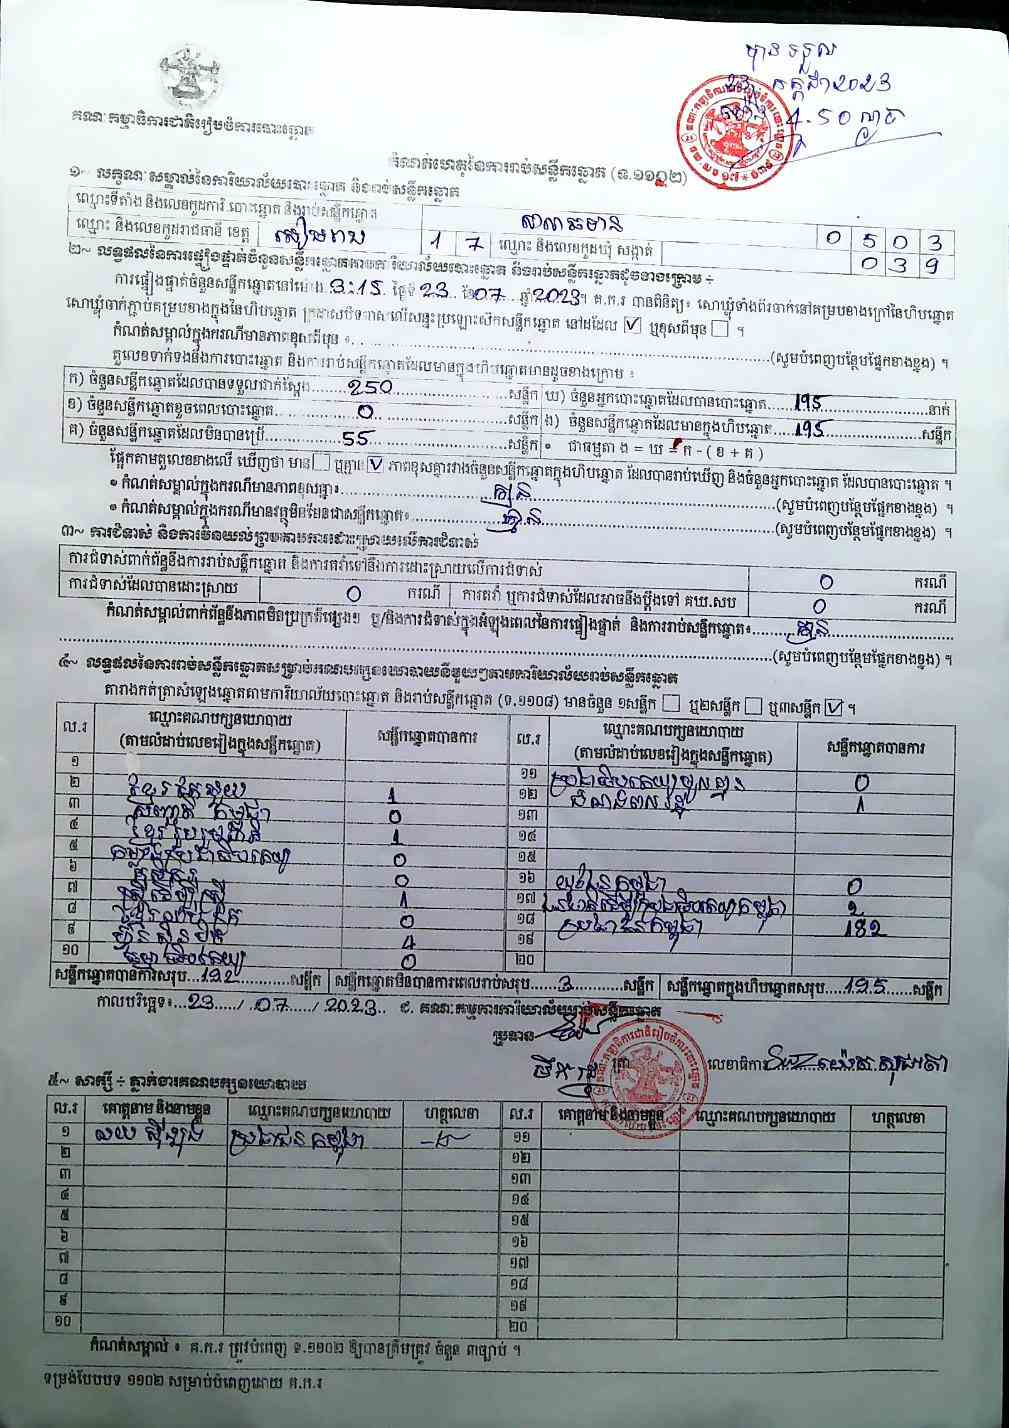 បាន ទទួល
23 កក្កដា 2023
ម៉ោង 4.50 ល្ងាច
គណៈកម្មាធិការជាតិរៀបចំការបោះឆ្នោត
កំណត់ហេតុនៃការរាប់សន្លឹកឆ្នោត (ទ.១១០២)
១~ លក្ខណៈសម្គាល់នៃការិយាល័យបោះឆ្នោត និងរាប់សន្លឹកឆ្នោត
ឈ្មោះទីតាំង និងលេខកូដការិ.បោះឆ្នោត និងរាប់សន្លឹកឆ្នោត 0 5 0 3
ឈ្មោះ និងលេខកូដរាជធានី ខេត្ត សៀមរាប 1 7 ឈ្មោះ និងលេខកូដឃុំ សង្កាត់ 0 3 9
២~ លទ្ធផលនៃការផ្ទៀងផ្ទាត់ចំនួនសន្លឹកឆ្នោតតាមការិយាល័យបោះឆ្នោត និងរាប់សន្លឹកឆ្នោតដូចខាងក្រោម ÷
ការផ្ទៀងផ្ទាត់ចំនួនសន្លឹកឆ្នោតនៅម៉ោង 3:15 ថ្ងៃទី 23 ខែ 07 ឆ្នាំ 2023។ គ.ក.រ បានពិនិត្យ៖ សោឃ្លុំទាំងពីរចាក់នៅគម្របខាងក្រៅនៃហិបឆ្នោត
សោឃ្លុំចាក់ភ្ជាប់គម្របខាងក្នុងនៃហិបឆ្នោត ក្រដាសបិទពាសលើសន្ទះប្រឡោះសៀតសន្លឹកឆ្នោត នៅដដែល ☑ ឬខុសពីមុន ☐ ។
កំណត់សម្គាល់ក្នុងករណីមានភាពខុសពីមុន ៖ (សូមបំពេញបន្ថែមផ្នែកខាងខ្នង) ។
តួលេខទាក់ទងនឹងការបោះឆ្នោត និងការរាប់សន្លឹកឆ្នោតដែលមានក្នុងហិបឆ្នោតមានដូចខាងក្រោម ៖
ក) ចំនួនសន្លឹកឆ្នោតដែលបានទទួលជាក់ស្ដែង 250 សន្លឹក ឃ) ចំនួនអ្នកបោះឆ្នោតដែលបានបោះឆ្នោត 195 នាក់
ខ) ចំនួនសន្លឹកឆ្នោតខូចពេលបោះឆ្នោត 0 សន្លឹក ង) ចំនួនសន្លឹកឆ្នោតដែលមានក្នុងហិបឆ្នោត 195 សន្លឹក
គ) ចំនួនសន្លឹកឆ្នោតដែលមិនបានប្រើ 55 សន្លឹក ៖ ជាធម្មតា ង = ឃ = ក - ( ខ + គ )
ផ្អែកតាមតួលេខខាងលើ ឃើញថា មាន ☐ ឬគ្មាន ☑ ភាពខុសគ្នារវាងចំនួនសន្លឹកឆ្នោតក្នុងហិបឆ្នោត ដែលបានរាប់ឃើញ និងចំនួនអ្នកបោះឆ្នោត ដែលបានបោះឆ្នោត ។
• កំណត់សម្គាល់ក្នុងករណីមានភាពខុសគ្នា៖ គ្មាន (សូមបំពេញបន្ថែមផ្នែកខាងខ្នង) ។
• កំណត់សម្គាល់ក្នុងករណីមានវត្ថុមិនមែនជាសន្លឹកឆ្នោត៖ គ្មាន (សូមបំពេញបន្ថែមផ្នែកខាងខ្នង) ។
៣~ ការជំទាស់ និងការមិនយល់ព្រមតាមការដោះស្រាយលើការជំទាស់
ការជំទាស់ពាក់ព័ន្ធនឹងការរាប់សន្លឹកឆ្នោត និងការតវ៉ាទៅនឹងការដោះស្រាយលើការជំទាស់ 0 ករណី
ការជំទាស់ដែលបានដោះស្រាយ 0 ករណី ការតវ៉ា ឬការជំទាស់ដែលអាចនឹងប្ដឹងទៅ គឃ.សប 0 ករណី
កំណត់សម្គាល់ពាក់ព័ន្ធនឹងភាពមិនប្រក្រតីផ្សេងៗ ឬ/និងការជំទាស់ក្នុងអំឡុងពេលនៃការផ្ទៀងផ្ទាត់ និងការរាប់សន្លឹកឆ្នោត៖ គ្មាន
(សូមបំពេញបន្ថែមផ្នែកខាងខ្នង) ។
៤~ លទ្ធផលនៃការរាប់សន្លឹកឆ្នោតសម្រាប់គណបក្សនយោបាយនីមួយៗតាមការិយាល័យរាប់សន្លឹកឆ្នោត
តារាងកត់ត្រាសំឡេងឆ្នោតតាមការិយាល័យបោះឆ្នោត និងរាប់សន្លឹកឆ្នោត (ទ.១១០៨) មានចំនួន ១សន្លឹក ☐ ឬ២សន្លឹក ☐ ឬ៣សន្លឹក ☑ ។
ល.រ ឈ្មោះគណបក្សនយោបាយ (តាមលំដាប់លេខរៀងក្នុងសន្លឹកឆ្នោត) សន្លឹកឆ្នោតបានការ ល.រ ឈ្មោះគណបក្សនយោបាយ (តាមលំដាប់លេខរៀងក្នុងសន្លឹកឆ្នោត) សន្លឹកឆ្នោតបានការ
១ ១១ 0
២ 1 ១២ 1
៣ 0 ១៣
៤ 1 ១៤
៥ 0 ១៥
៦ 0 ១៦ 0
៧ 1 ១៧ 2
៨ 0 ១៨ ប្រជាជនកម្ពុជា 182
៩ 4 ១៩
១០ 0 ២០
សន្លឹកឆ្នោតបានការសរុប 192 សន្លឹក សន្លឹកឆ្នោតមិនបានការពេលរាប់សរុប 3 សន្លឹក សន្លឹកឆ្នោតក្នុងហិបឆ្នោតសរុប 195 សន្លឹក
កាលបរិច្ឆេទ៖ 23 / 07 / 2023 គណៈកម្មការការិយាល័យរាប់សន្លឹកឆ្នោត
ប្រធាន
ត្រា លេខាធិការ
៥~ សាក្សី ÷ ភ្នាក់ងារគណបក្សនយោបាយ
ល.រ គោត្តនាម និងនាមខ្លួន ឈ្មោះគណបក្សនយោបាយ ហត្ថលេខា ល.រ គោត្តនាម និងនាមខ្លួន ឈ្មោះគណបក្សនយោបាយ ហត្ថលេខា
១ ប្រជាជនកម្ពុជា ១១
២ ១២
៣ ១៣
៤ ១៤
៥ ១៥
៦ ១៦
៧ ១៧
៨ ១៨
៩ ១៩
១០ ២០
កំណត់សម្គាល់ ៖ គ.ក.រ ត្រូវបំពេញ ទ.១១០២ ឱ្យបានត្រឹមត្រូវ ចំនួន ៣ច្បាប់ ។
ទម្រង់បែបបទ ១១០២ សម្រាប់បំពេញដោយ គ.ក.រ